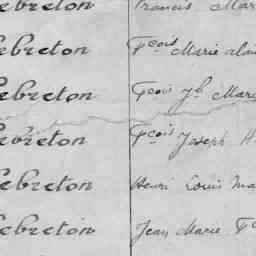 ebreton Francis Mar
ebreton Fçois Marie alai
ebreton Fçois Jh Marie
ebreton Fçois Joseph H
ebreton Henri Louis Ma
ebreton Jean Marie Fç